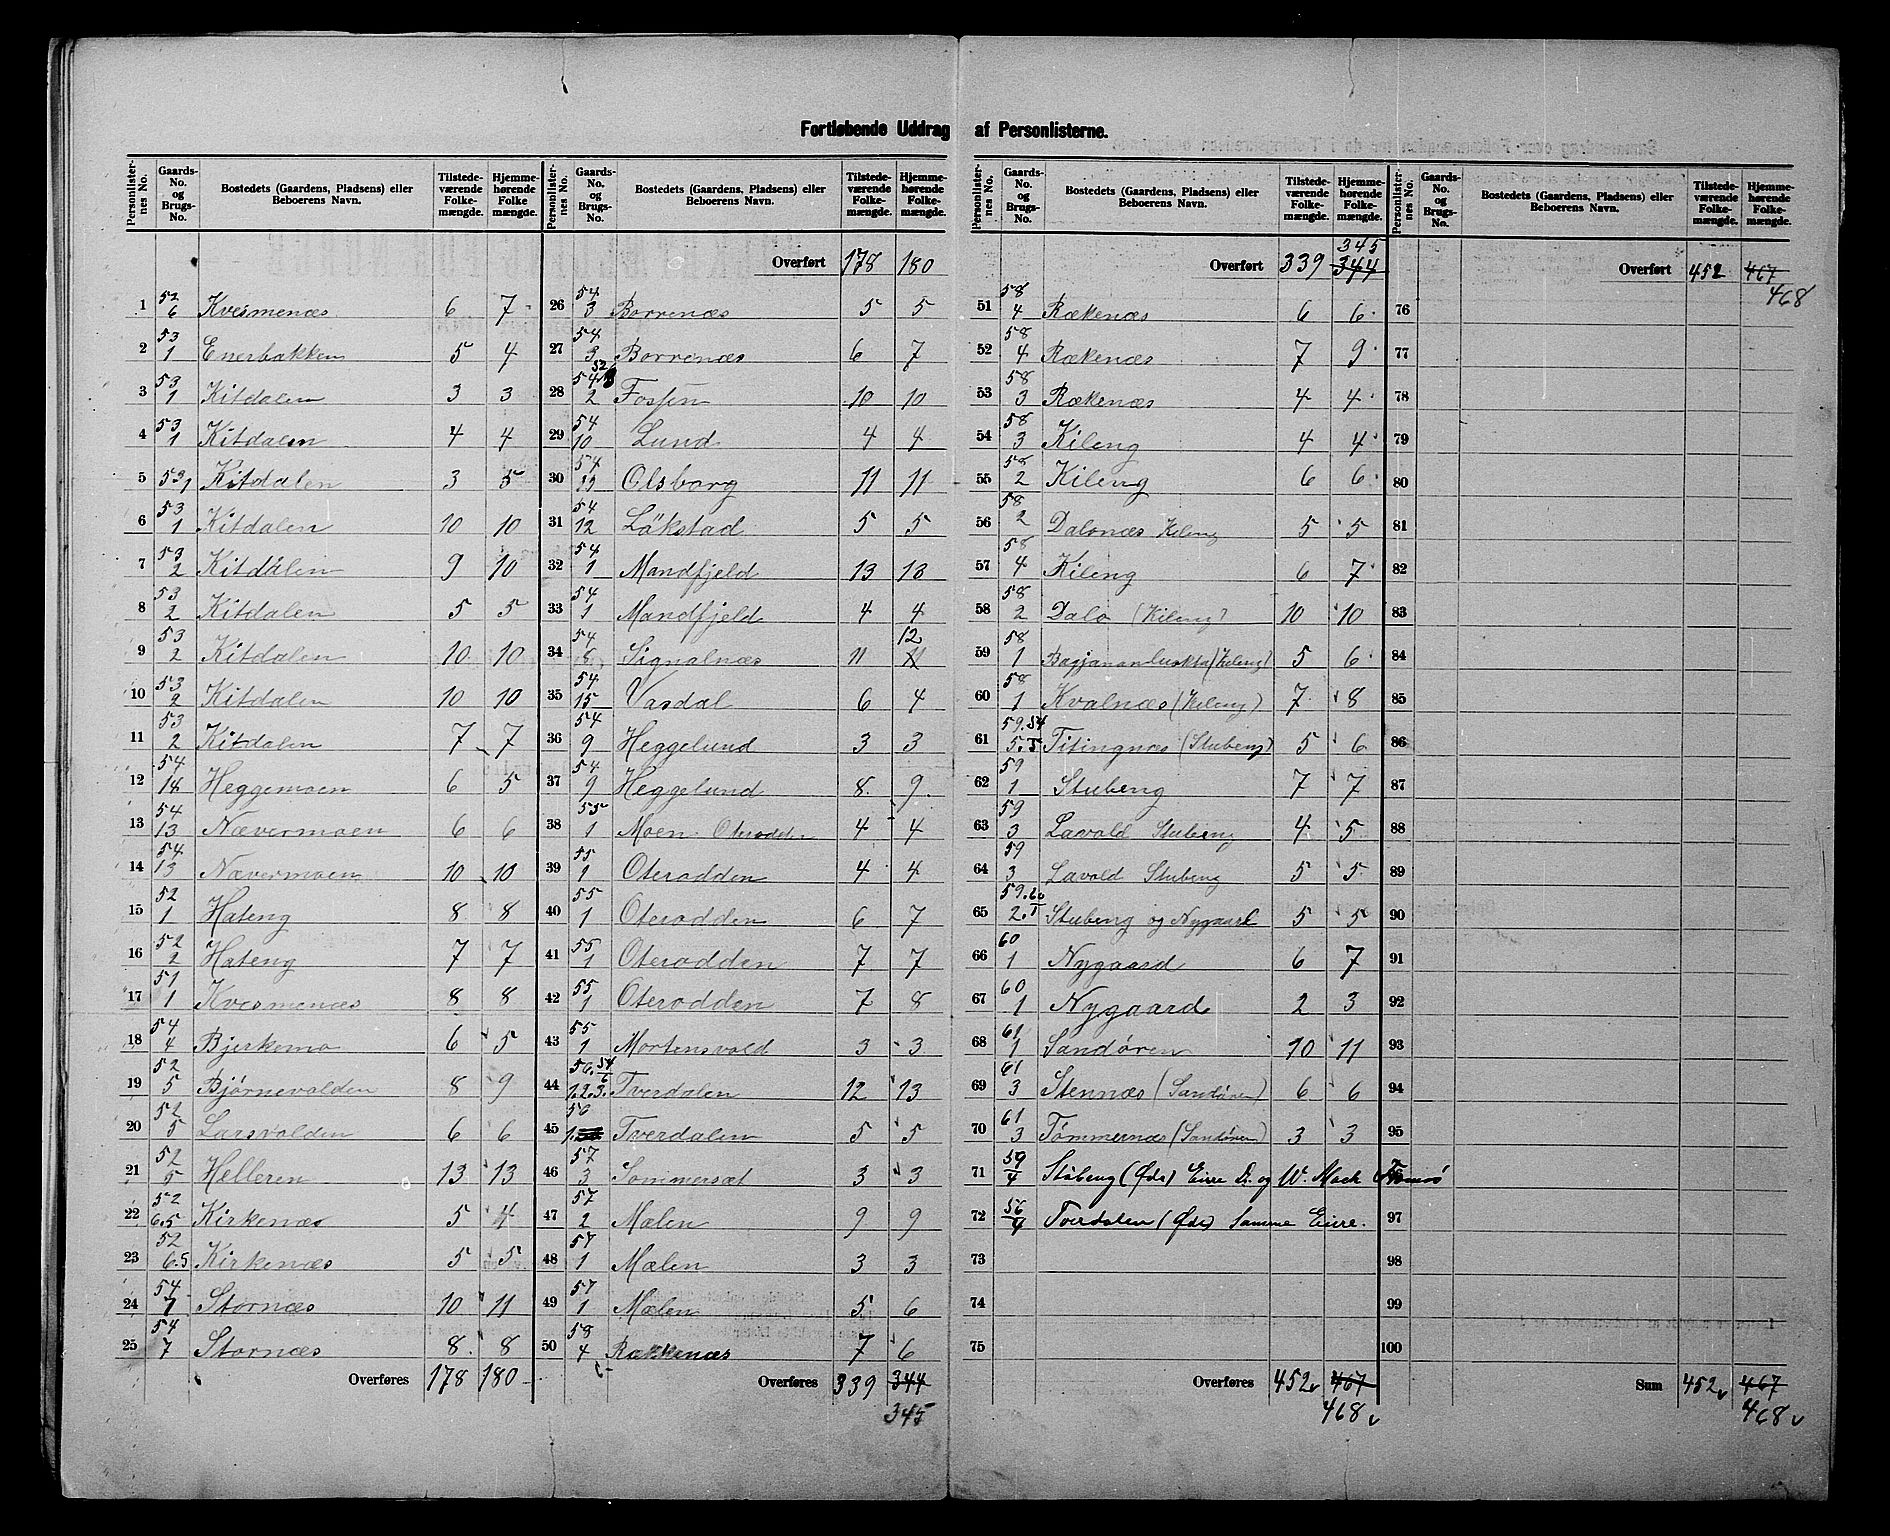 Fortløbende Uddrag af Personlisterne.
Personlister-nes No. | Gaards-No. og Brugs-No. | Bostedets (Gaardens, Pladsens) eller Beboerens Navn. | Tilstede-værende Folke-mængde. | Hjemme-hørende Folke mængde.
1 52/6 Kvesmenæs 6 7
2 53/1 Enerbakken 5 4
3 53/1 Kitdalen 3 3
4 53/1 Kitdalen 4 4
5 53,1 Kitdalen 3 5
6 53/1 Kitdalen 10 10
7 53/2 Kitdalen 9 10
8 53/2 Kitdalen 5 5
9 53/2 Kitdalen 10 10
10 53/2 Kitdalen 10 10
11 53/2 Kitdalen 7 7
12 54/14 Heggemoen 6 5
13 54/13 Nævermoen 6 6
14 54/13 Nævermoen 10 10
15 52/1 Hateng 8 8
16 52/2 Hateng 7 7
17 51/1 Kvesmenæs 8 8
18 54/4 Bjerkemo 6 5
19 52/5 Bjørnevolden 8 9
20 52/5 Larsvolden 6 6
21 52/5 Helleren 13 13
22 52/6.5 Kirkenæs 5 4
23 52/6.5 Kirkenæs 5 5
24 54/7 Stornæs 10 11
25 54/7 Stornæs 8 8
Overføres 178 180
Personlister-nes No. | Gaards-No. og Brugs-No. | Bostedets (Gaardens, Pladsens) eller Beboerens Navn. | Tilstede-værende Folke-mængde. | Hjemme-hørende Folke-mængde.
Overført 178 180
26 54/3 Borrenæs 5 5
27 54/3 Borrenæs 6 7
28 54/2 Fossen 10 10
29 54/10 Lund 4 4
30 54/11 Olsborg 11 11
31 54/12 Løkstad 5 5
32 54/1 Mandfjeld 13 13
33 54/1 Mandfjeld 4 4
34 54/8 Signalnæs 11 11 12
35 54/15 Vasdal 6 4
36 54/9 Heggelund 3 3
37 54/9 Heggelund 8 9
38 55/1 Moen Oterodden 4 4
39 55/1 Oterodden 4 4
40 55/1 Oterodden 6 7
41 55/1 Oterodden 7 7
42 55/1 Oterodden 7 8
43 55/1 Mortensvold 3 3
44 56.54/6 1.2.3. Tverdalen 12 13
45 56/1 Tverdalen 5 5
46 57/3 Sommersæt 3 3
47 57/2 Mælen 9 9
48 57/1 Mælen 3 3
49 57/1 Mælen 5 6
50 58/4 Rækkenæs 7 6
Overføres 339 344
345
Personlister-nes No. | Gaards-No. og Brugs-No. | Bostedets (Gaardens, Pladsens) eller Beboerens Navn. | Tilstede-værende Folke-mængde. | Hjemme-hørende Folke-mængde.
345
Overført 339 344
51 58/4 Rækenæs 6 6
52 58/4 Rækenæs 7 9
53 58/3 Rækenæs 4 4
54 58/3 Kileng 4 4
55 58/2 Kileng 6 6
56 58/2 Dalonæs Kileng 5 5
57 58/4 Kileng 6 7
58 58/2 Dalo (Kileng) 10 10
59 58/1 (Kileng) 5 6
60 58/1 Kvalnæs (Kileng) 7 8
61 59.54/5.5 Titingnæs (Stubeng) 5 6
62 59/1 Stubeng 7 7
63 59/3 Lavold Stubeng 4 5
64 59/3 Lavold Stubeng 5 5
65 59.60/2.1 Stubeng og Nygaard 5 5
66 60/1 Nygaard 6 7
67 60/1 Nygaard 2 3
68 61/1 Sandøren 10 11
69 61/3 Stennæs (Sandøren) 6 6
70 61/3 Tømmernæs (Sandøren) 3 3
71 59/4 Stubeng (Øde) Eiere D. og W. Mack Tromsø
72 56/4 Tverdalen (Øde) Samme Eiere.
73
74
75
Overføres 452 467
468
Personlister-nes No. | Gaards-No. og Brugs-No. | Bostedets (Gaardens, Pladsens) eller Beboerens Navn. | Tilstede-værende Folke-mængde. | Hjemme-hørende Folke-mængde.
Overført 452 467
468
76
77
78
79
80
81
82
83
84
85
86
87
88
89
90
91
92
93
94
95
96
97
98
99
100
Sum 452 467
468